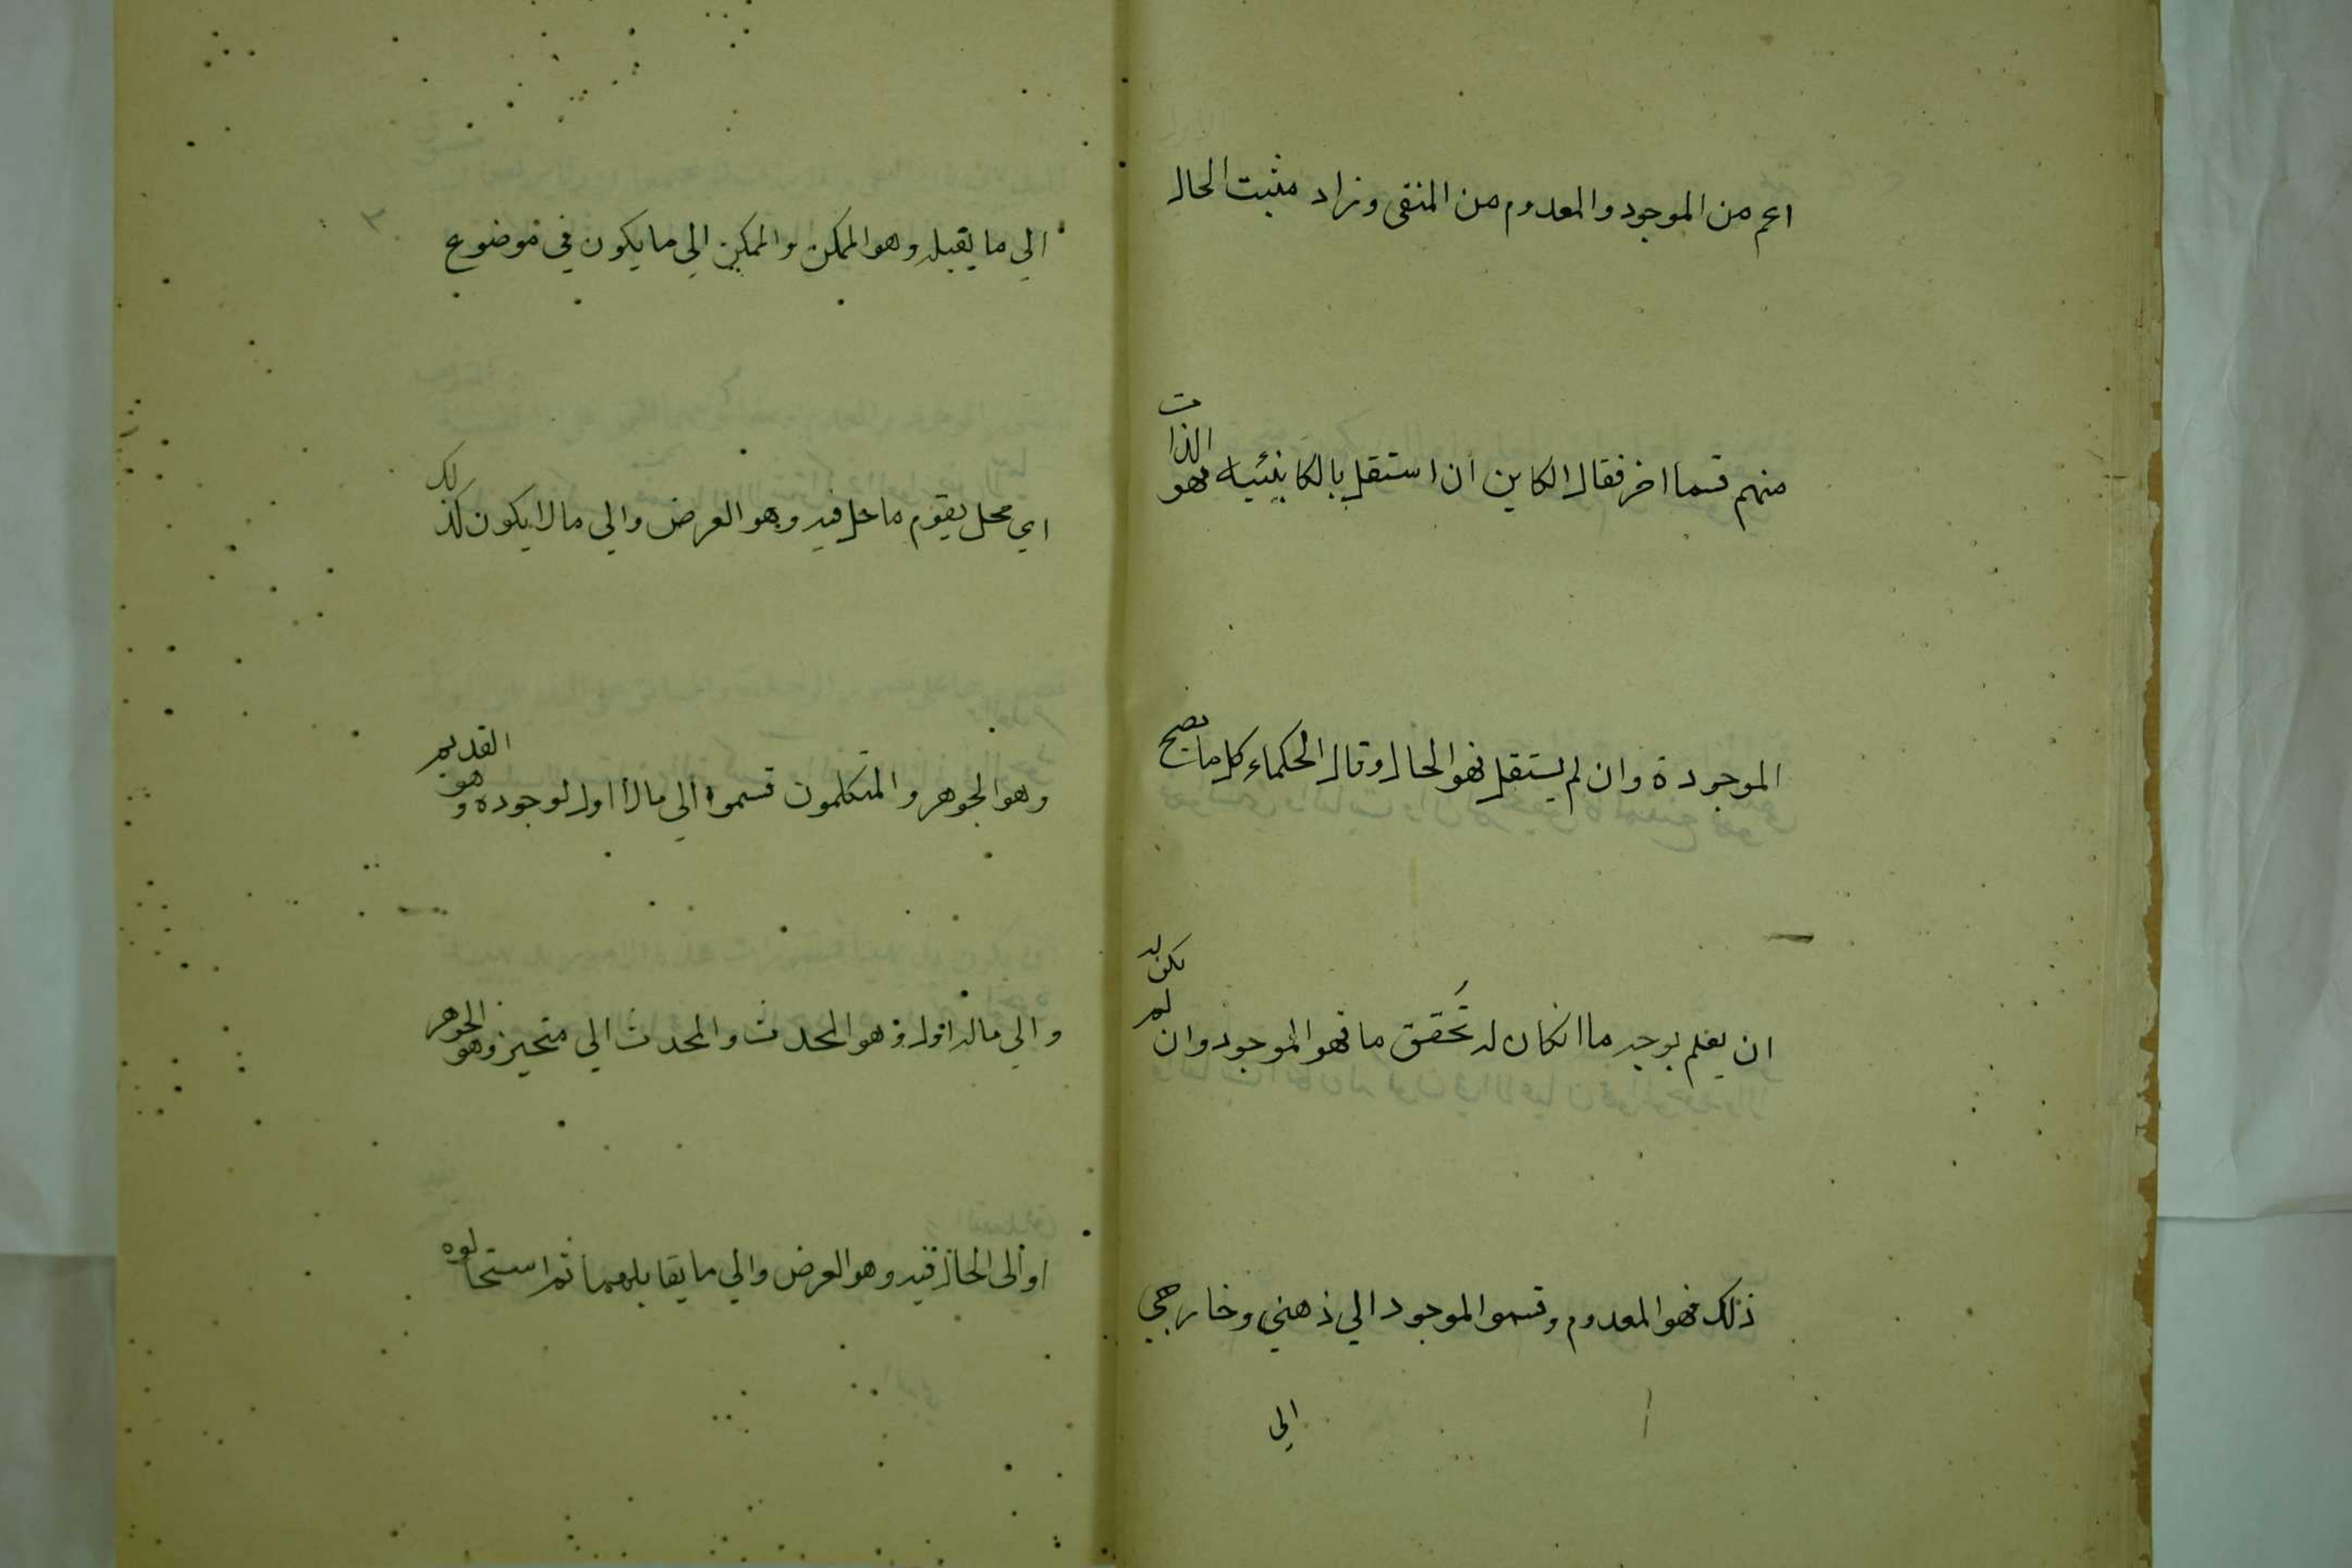 اعم من الموجود والمعدوم من المنفى وزاد مثبت الحال
منهم قسما اخر فقال الكاين ان استقل بالكاينيه فهو الذات
الموجودة وان لم يستقل فهو الحال وقال الحكماء كل ما يصح
ان يعلم بوجه ما انكان له تحقق ما فهو الموجود وان لم يكن له
ذلك فهو المعدوم وقسموا الموجود الي ذهني وخارجي
الي
الي ما يقبله وهو الممكن والممكن الي ما يكون في موضوع
اي محل يقوم ما حل فيه وهو العرض والي ما لا يكون كذلك
وهو الجوهر والمتكلمون قسموا الي ما لا اول لوجوده وهو القديم
والي ماله اول وهو المحدث والمحدث الي متحيز وهو الجوهر
او الى الحال فيه وهو العرض والي ما يقابلهما ثم استحالوه